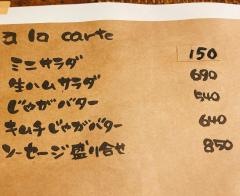 a la carte
ミニサラダ 150
生ハムサラダ 690
じゃがバター 540
キムチじゃがバター 640
ソーセージ盛り合せ 850